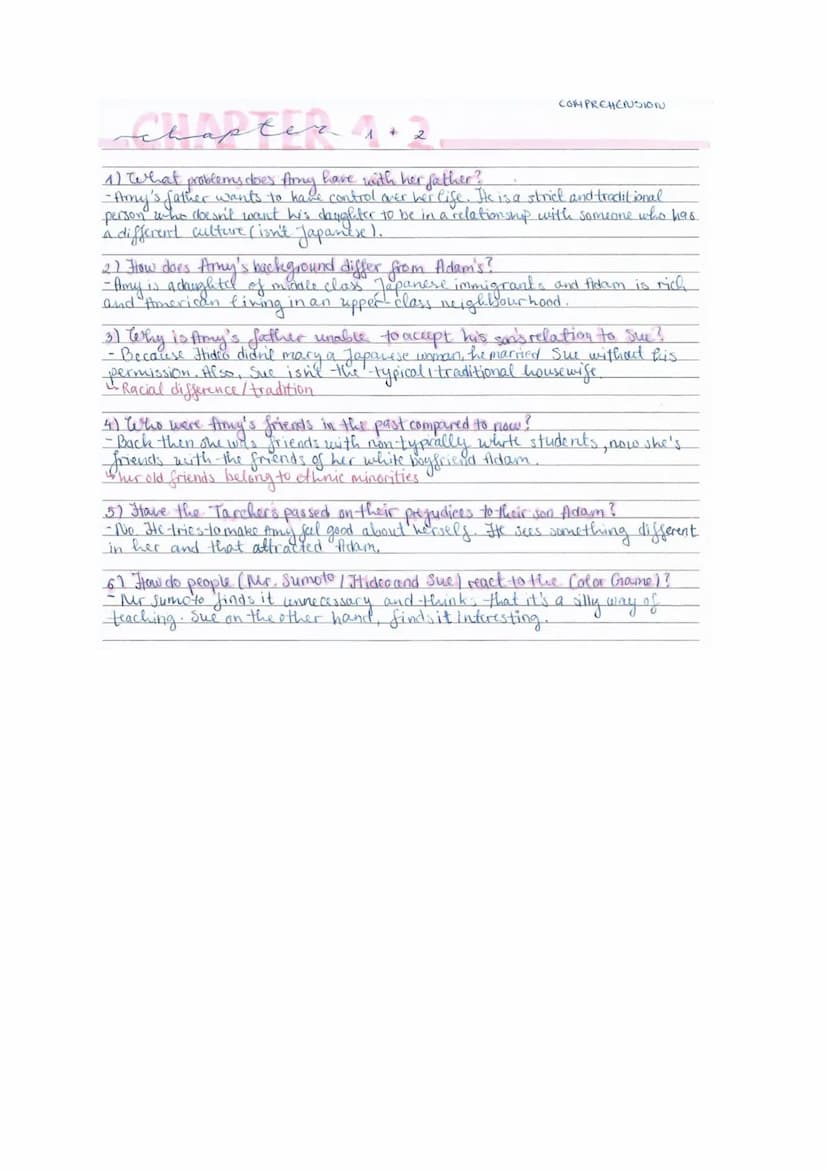 COMPREHENSION
CHAPTER 1 + 2
chapter 1 + 2
1) What problems does Amy have with her father?
- Amy's father wants to have control over her life. He is a strict and traditional
person who doesn't want his daughter to be in a relationship with someone who has
a different culture (isn't Japanese).
2) How does Amy's background differ from Adam's?
- Amy is a daughter of middle class Japanese immigrants and Adam is rich
and American living in an upper-class neighbourhood.
3) Why is Amy's father unable to accept his son's relation to Sue?
- Because Hideo didn't mary a Japanese woman, he married Sue without his
permission. Also, Sue isn't the typical / traditional housewife.
↳ Racial difference / tradition
4) Who were Amy's friends in the past compared to now?
- Back then she was friends with non-typically white students, now she's
friends with the friends of her white boyfriend Adam.
↳ her old friends belong to ethnic minorities
5) Have the Tarchers passed on their prejudices to their son Adam?
- No. He tries to make Amy feel good about herself. He sees something different
in her and that attracted Adam.
6) How do people (Mr. Sumoto / Hideo and Sue) react to the Color Game)?
- Mr Sumoto finds it unnecessary and thinks that it's a silly way of
teaching. Sue on the other hand, finds it interesting.